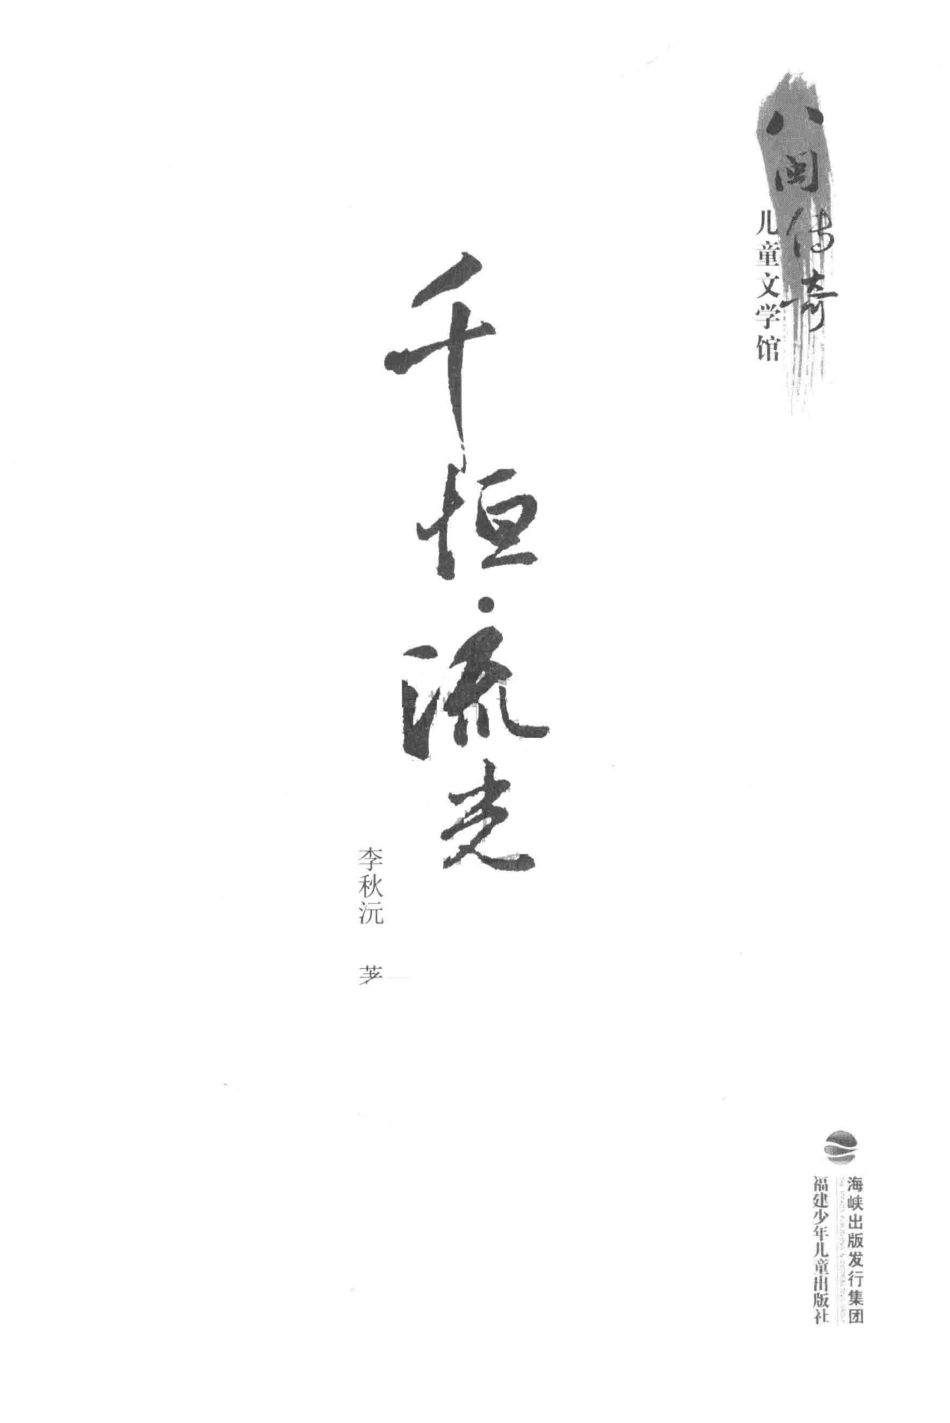 八闽传奇
儿童文学馆
千恒·流光
李秋沅 著
海峡出版发行集团
福建少年儿童出版社